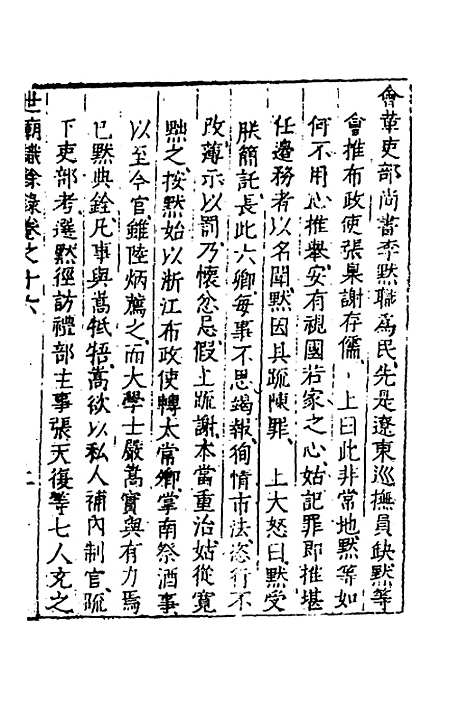 會革吏部尚書李黙職為民先是遼東巡撫員缺黙等
會推布政使張臬謝存儒上曰此非常地黙等如
何不用心推舉安有視國若家之心姑記罪即推堪
任邊務者以名聞黙因具疏陳罪上大怒曰黙受
朕簡託長此六卿每事不思竭報徇情市法恣行不
改薄示以罰乃懷忿忌假上疏謝本當重治姑從寬
黜之按黙始以浙江布政使轉太常卿掌南祭酒事
以至今官雖陸炳薦之而大學士嚴嵩實與有力焉
已黙典銓凡事與嵩牴牾嵩欲以私人補內制官疏
下吏部考選黙徑訪禮部主事張天復等七人充之
世廟識餘錄卷之十六